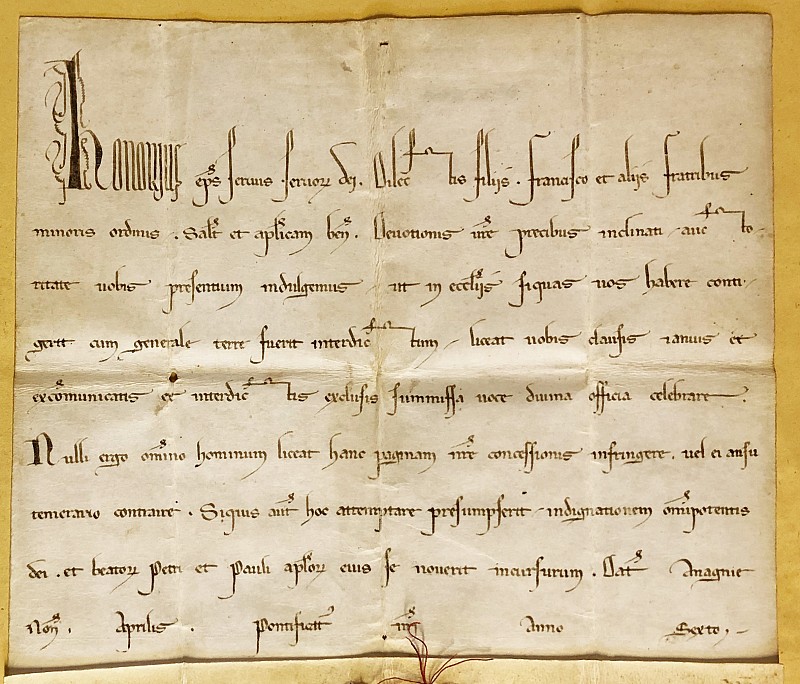 Honorius eps servus servor dei. Dilectis filiis. Francisco et aliis fratribus
minoris ordinis. Salt et aplicam ben. Devotionis vre precibus inclinati aucto-
ritate vobis presentium indulgemus ut in eccliis siquas vos habere conti-
gerit cum generale terre fuerit interdictum liceat vobis clausis ianuis et
excomunicatis et interdictis exclusis summissa voce divina officia celebrare.
Nulli ergo omnino hominum liceat hanc paginam nre concessionis infringere. vel ei ausu
temerario contraire. Siquis aut hoc attemptare presumpserit indignationem omipotentis
dei. et beator Petri et Pauli aplor eius se noverit incursurum. Dat Anagnie
Non. Aprilis. Pontificat nri Anno Sexto.